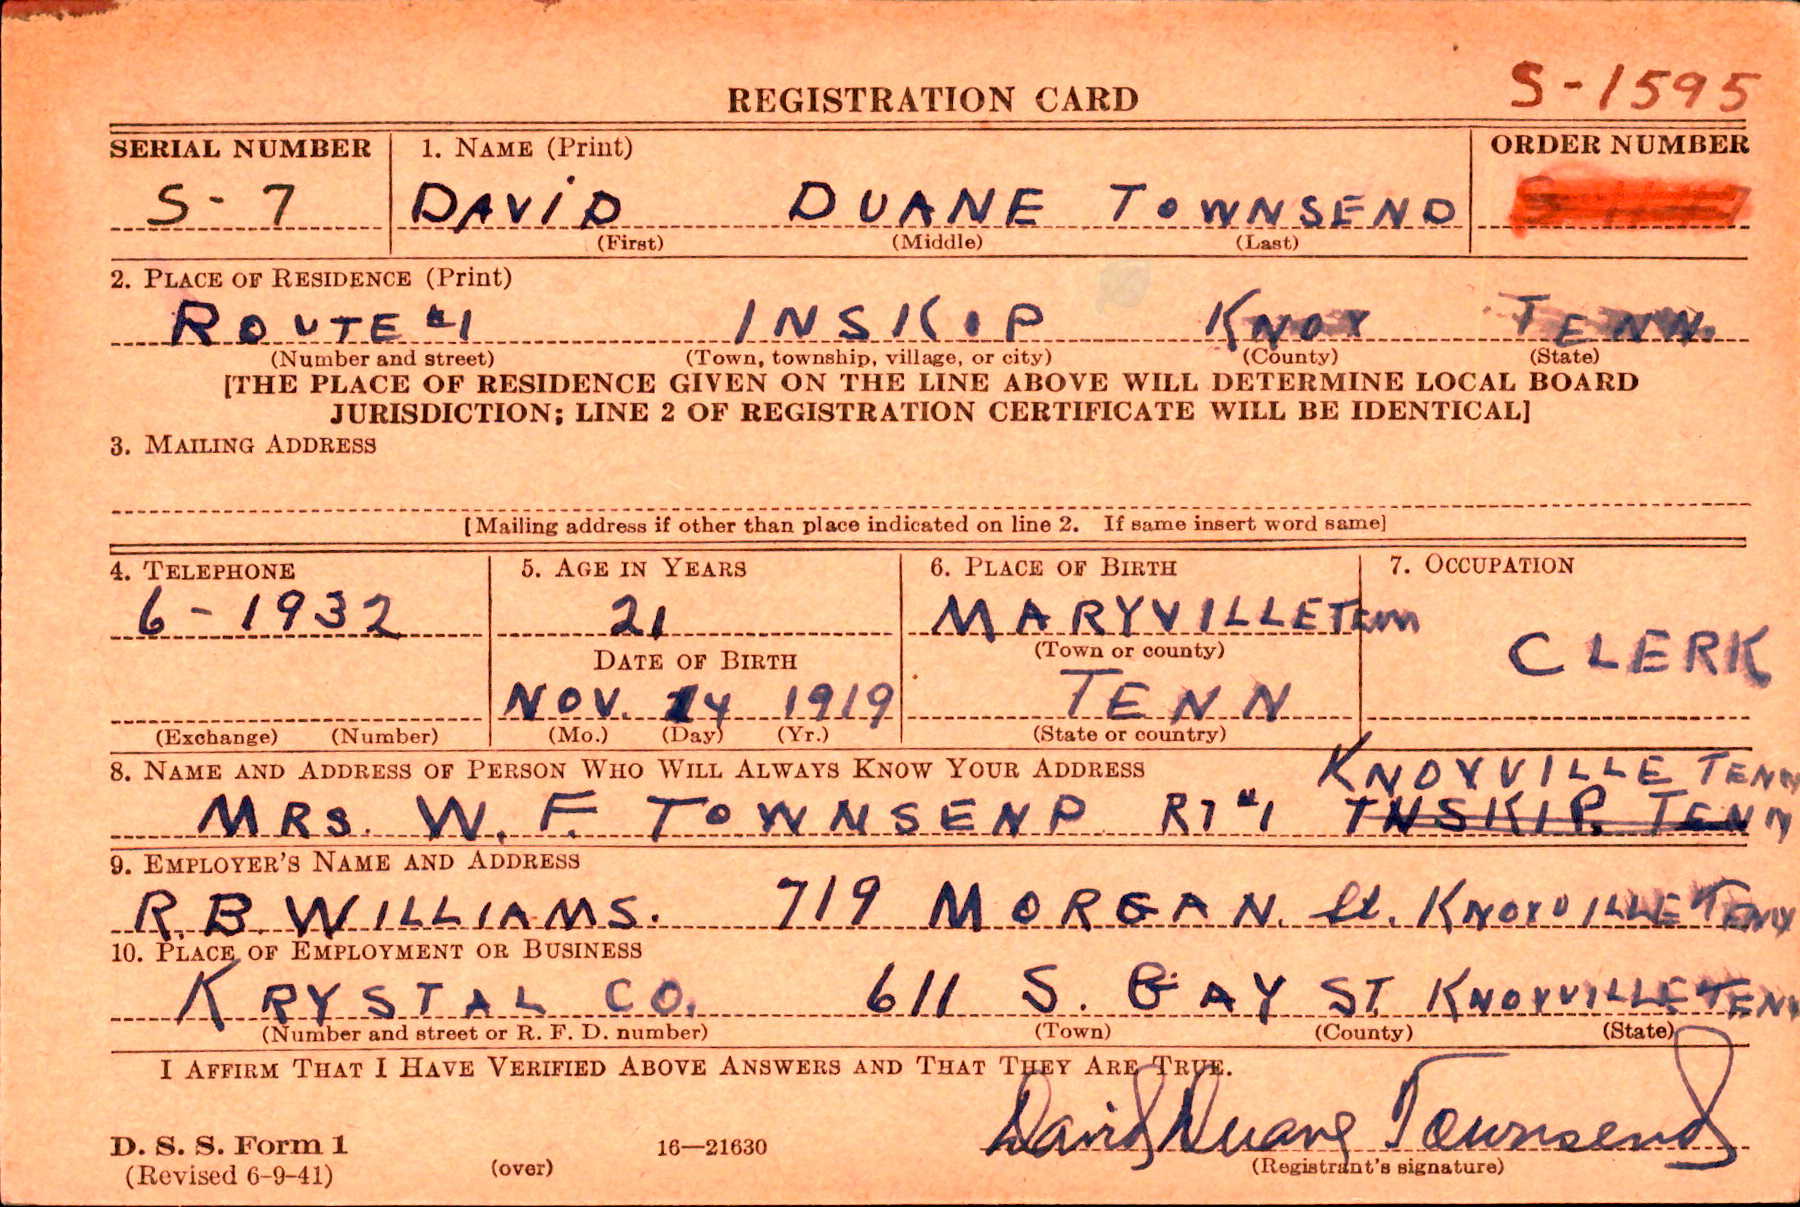 S-1595
REGISTRATION CARD
SERIAL NUMBER 1. NAME (Print) ORDER NUMBER
S-7 DAVID DUANE TOWNSEND
(First) (Middle) (Last)
2. PLACE OF RESIDENCE (Print)
ROUTE #1 INSKIP KNOX TENN.
(Number and street) (Town, township, village, or city) (County) (State)
[THE PLACE OF RESIDENCE GIVEN ON THE LINE ABOVE WILL DETERMINE LOCAL BOARD
JURISDICTION; LINE 2 OF REGISTRATION CERTIFICATE WILL BE IDENTICAL]
3. MAILING ADDRESS
[Mailing address if other than place indicated on line 2. If same insert word same]
4. TELEPHONE 5. AGE IN YEARS 6. PLACE OF BIRTH 7. OCCUPATION
6-1932 21 MARYVILLE Tenn
(Town or county)
CLERK
DATE OF BIRTH
NOV. 14 1919 TENN
(Exchange) (Number) (Mo.) (Day) (Yr.) (State or country)
8. NAME AND ADDRESS OF PERSON WHO WILL ALWAYS KNOW YOUR ADDRESS
KNOXVILLE TENN
MRS. W. F. TOWNSEND RT #1 INSKIP, TENN
9. EMPLOYER'S NAME AND ADDRESS
R. B. WILLIAMS. 719 MORGAN. St. KNOXVILLE TENN
10. PLACE OF EMPLOYMENT OR BUSINESS
KRYSTAL CO. 611 S. GAY ST. KNOXVILLE TENN
(Number and street or R. F. D. number) (Town) (County) (State)
I AFFIRM THAT I HAVE VERIFIED ABOVE ANSWERS AND THAT THEY ARE TRUE.
David Duane Townsend
D. S. S. Form 1 16—21630
(Revised 6-9-41) (over) (Registrant's signature)